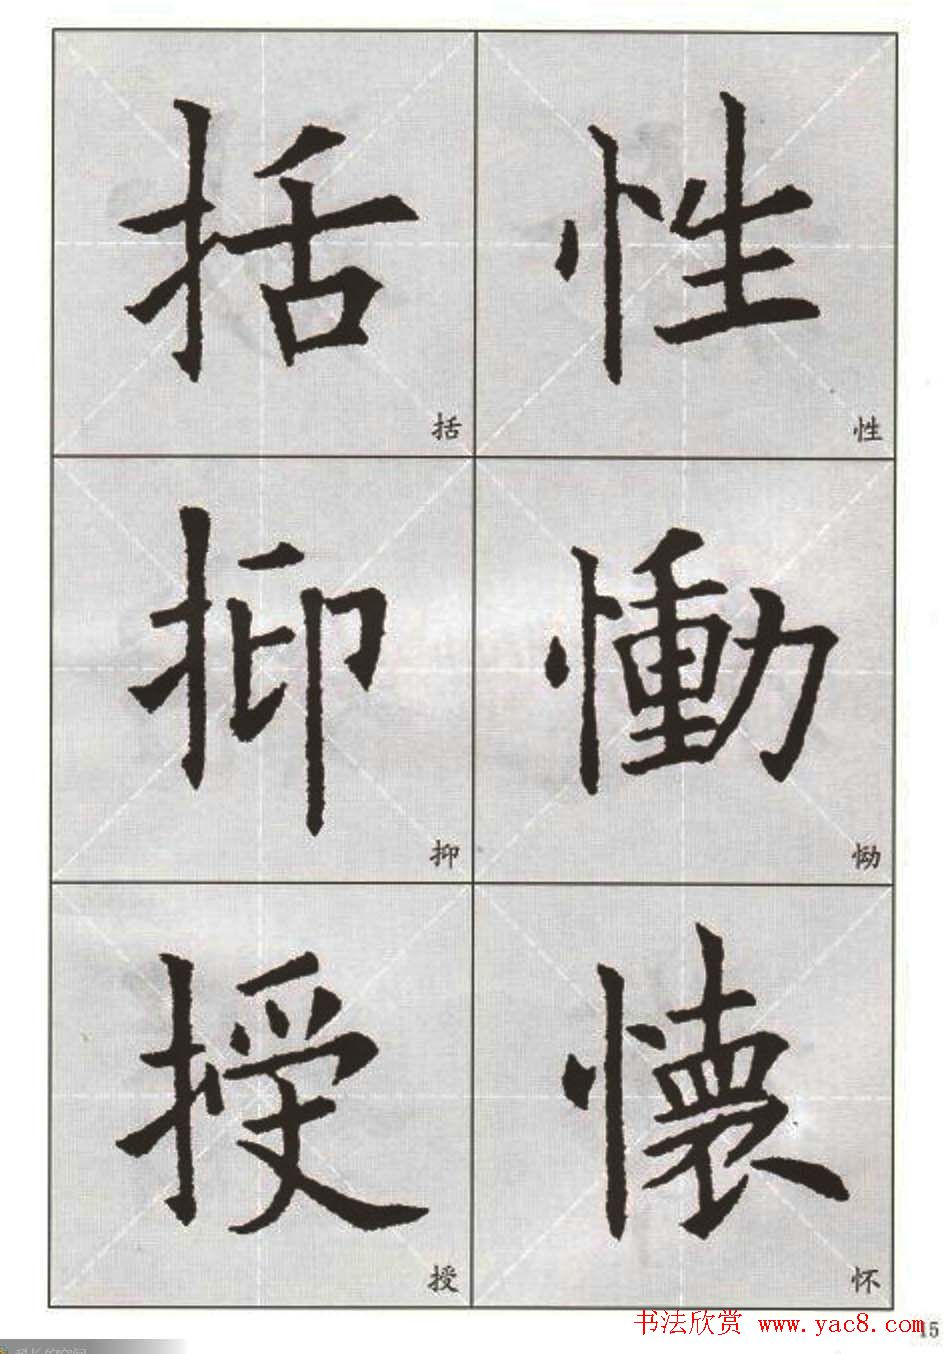 括 性
括 性
抑 慟
抑 恸
授 懷
授 怀
书法欣赏 www.yac8.com
15